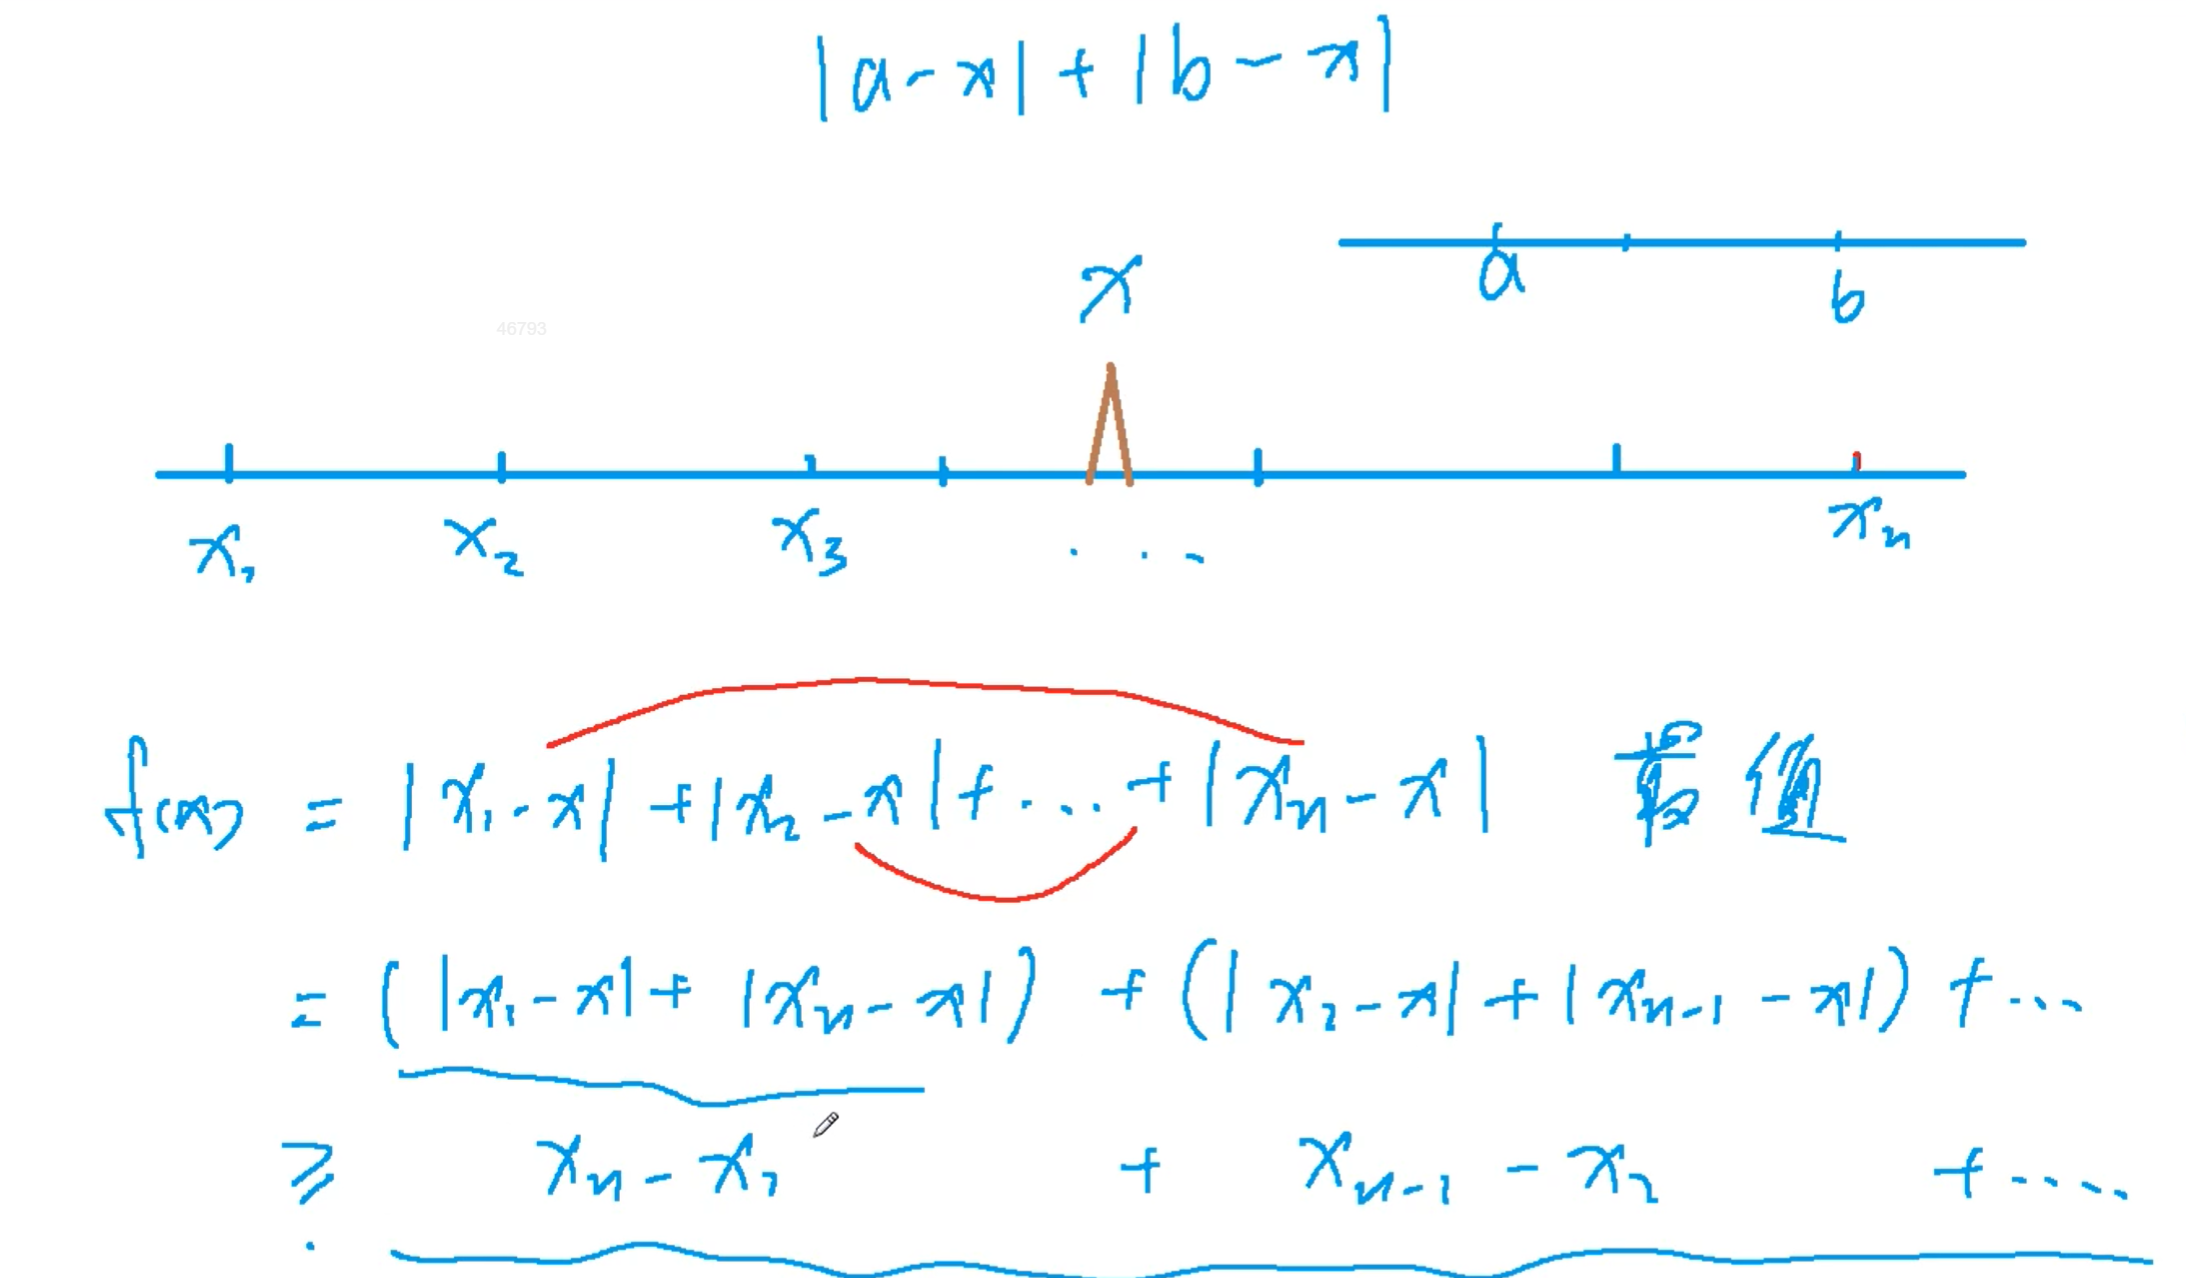 |a-x|+|b-x|
a
b
x
46793
x₁ x₂ x₃ ... xₙ
f(x) = |x₁-x|+|x₂-x|+...+|xₙ-x| 值
= (|x₁-x|+|xₙ-x|)+(|x₂-x|+|xₙ₋₁-x|)+...
≥ xₙ-x₁ + xₙ₋₁-x₂ +....